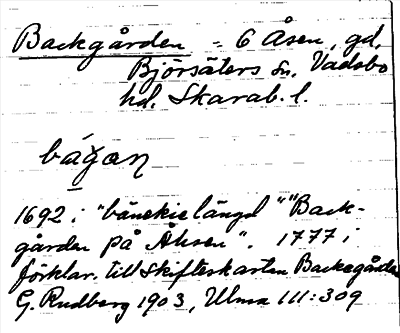 Backgården = 6 Åsen, gd,
Björsäters sn, Vadsbo
hd, Skarab. l.
bágan
1692 i "bänskielängd" "Back-
gården på Åhsen". 1777 i
förklar. till skifteskartan Backagården
G. Rudberg 1903, Ulma 111:309